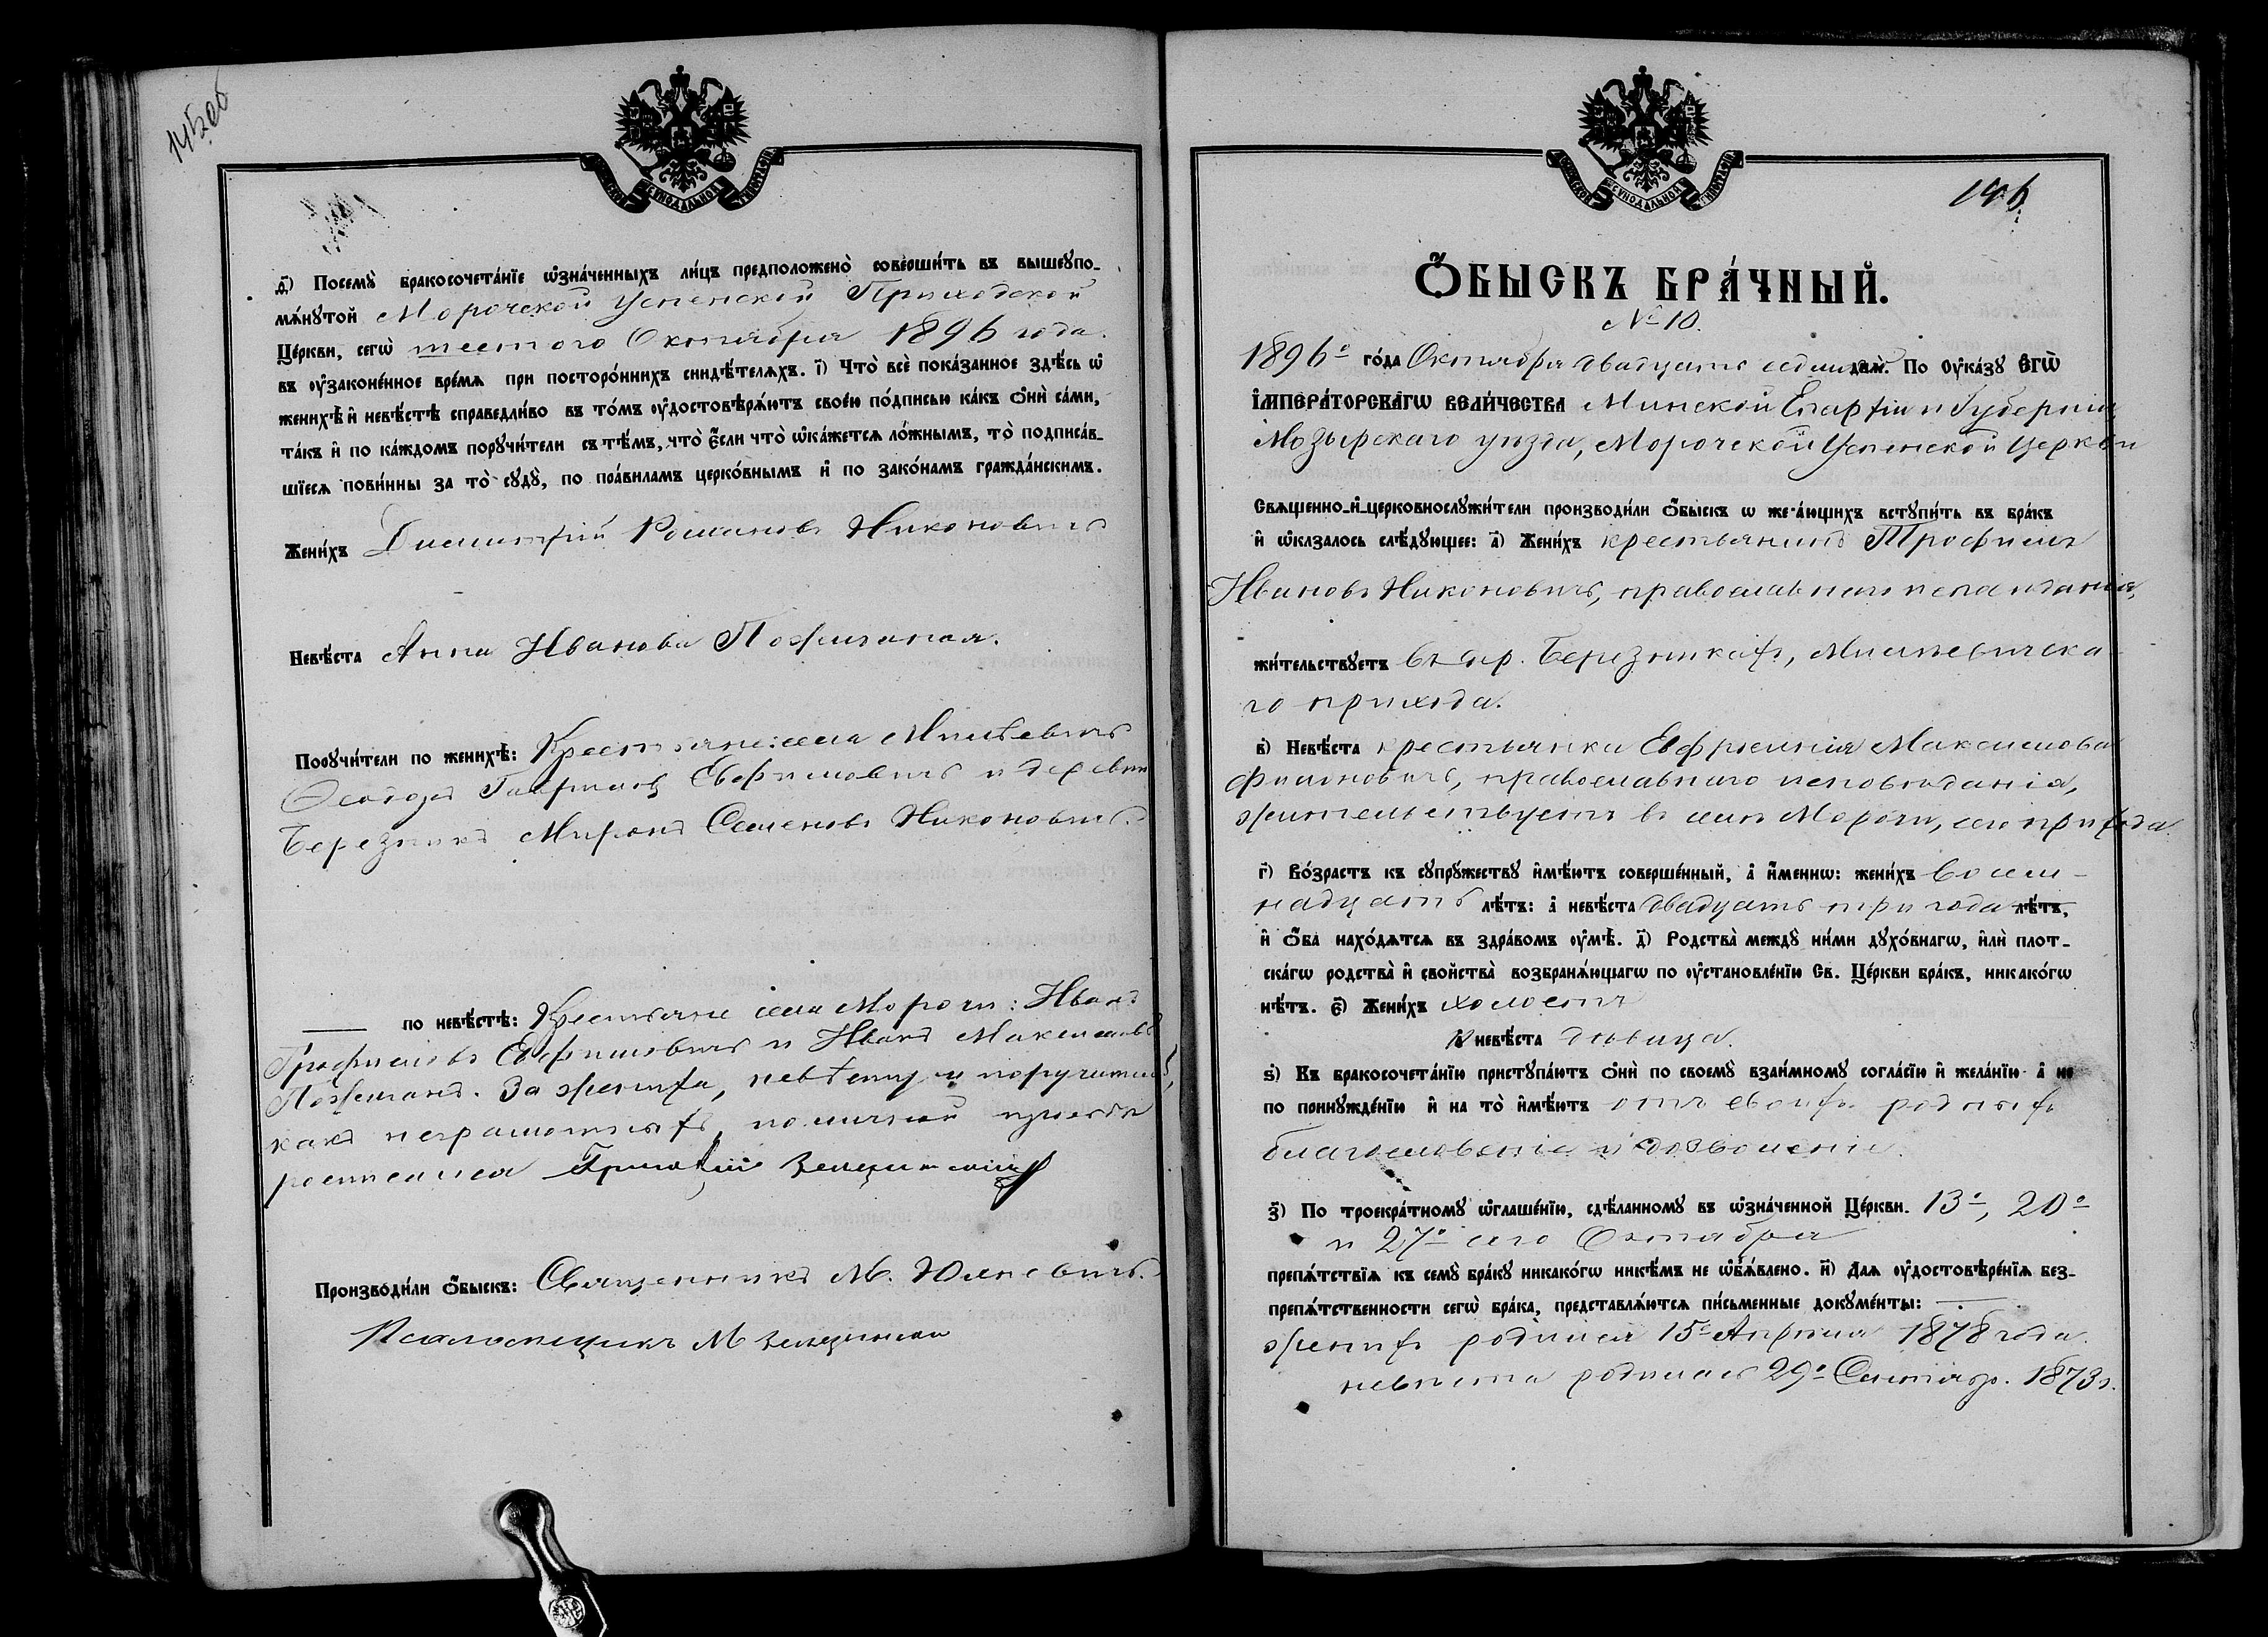 145об
СѴНОДАЛЬНОЙ
д҃) Посемꙋ̀ бракосочета́нїе ѡ҆зна́ченныхъ ли́цъ предположено̀ соверши́ть въ вышеꙋпо-
мѧ́нꙋтой Морочской Успенской Приходской
Це́ркви, сегѡ̀ шестого Октября 1896 года.
въ ᲂу҆законе́нное вре́мѧ при посторо́ннихъ свидѣ́телѧхъ. і҃) Что̀ всѐ пока́занное здѣ́сь ѡ҆
женихѣ̀ и҆ невѣ́стѣ справедли́во въ то́мъ ᲂу҆достовѣрѧ́ютъ свое́ю по́дписью ка́къ ѻ҆нѝ са́ми,
та́къ и҆ по ка́ждомъ порꙋчи́тели съ тѣ́мъ, что̀ є҆́сли что̀ ѡ҆ка́жетсѧ ло́жнымъ, то̀ подписа́в-
шїесѧ пови́нны за то̀ сꙋдꙋ̀, по пра́виламъ церко́внымъ и҆ по зако́намъ гражда́нскимъ.
Жени́хъ Димитрій Романовъ Никоновичъ
Невѣ́ста Анна Иванова Пожиганая.
Порꙋчи́тели по женихѣ̀: Крестьяне: села Милевичъ
Ѳеодоръ Евфимовичъ и деревни
Березникъ Миронъ Семеновъ Никоновичъ.
по невѣ́стѣ: Крестьяне села Морочи: Иванъ
Трофимовъ Евфимовичъ и Иванъ Максимовъ
Пожиганъ. За жениха, невѣсту и поручителей,
какъ неграмотныхъ, по личной просьбѣ
росписался Григорій
Производи́ли ѻ҆́быскъ: Священникъ М. Юхневичъ.
Псаломщикъ М
146
СѴНОДАЛЬНОЙ
Ѻ҆́БЫСКЪ БРА́ЧНЫЙ.
№ 10.
1896го го́да Октября двадцать седьмаго днѧ̀. По ᲂу҆ка́зꙋ Є҆ГѠ̀
І҆МПЕРА́ТОРСКАГѠ ВЕЛИ́ЧЕСТВА Минской Епархіи и Губерніи
Мозырскаго уѣзда, Морочской Успенской церкви
Свѧщенно-и҆-церковнослꙋжи́тели производи́ли ѻ҆́быскъ ѡ҆ жела́ющихъ встꙋпи́ть въ бра́къ
и҆ ѡ҆казалось слѣ́дꙋющее: а҃) Жени́хъ крестьянинъ Трофимъ
Ивановъ Никоновичъ, православнаго исповѣданія,
жи́тельствꙋетъ въ дер. Березникахъ, Милевичска-
го прихода.
в҃) Невѣ́ста крестьянка Евфросинія Максимова
Филоновичъ, православнаго исповѣданія,
жительствуетъ въ селѣ Морочи, сего прихода.
г҃) Во́зрастъ къ сꙋпрꙋ́жествꙋ и҆мѣ́ютъ соверше́нный, а҆ и҆́меннѡ: жени́хъ восем-
надцать лѣ́тъ: а҆ невѣ́ста двадцать три года лѣ́тъ,
и҆ ѻ҆́ба нахо́дѧтсѧ въ здра́вомъ ᲂу҆мѣ̀. д҃) Родства̀ междꙋ̀ ни́ми дꙋхо́внагѡ, и҆лѝ плот-
ска́гѡ родства̀ и҆ сво́йства̀ возбранѧ́ющагѡ по ᲂу҆становле́нїю Св. Це́ркви бра́къ, никако́гѡ
нѣ́тъ. є҃) Жени́хъ холостъ
а҆ невѣ́ста дѣвица.
ѕ҃) Къ бракосочета́нїю пристꙋпа́ютъ ѻ҆нѝ по своемꙋ̀ взаи́мномꙋ согла́сїю и҆ жела́нїю а҆ не
по принꙋжде́нїю и҆ на то̀ и҆мѣ́ютъ отъ своихъ родныхъ
благословеніе и дозволеніе.
з҃) По троекра́тномꙋ ѡ҆глаше́нїю, сдѣ́ланномꙋ въ ѡ҆зна́ченной Це́ркви. 13го, 20го
и 27го сего Октября
препѧ́тствїѧ къ семꙋ̀ бра́кꙋ никако́гѡ никѣ́мъ не ѡ҆б̾ѧ́влено. и҃) Длѧ ᲂу҆достовѣре́нїѧ без-
препѧ́тственности сегѡ̀ бра́ка, представлѧ́ютсѧ пи́сьменные докꙋме́нты:
женихъ родился 15го Апрѣля 1878 года.
невѣста родилась 29го Сентябр. 1873 г.